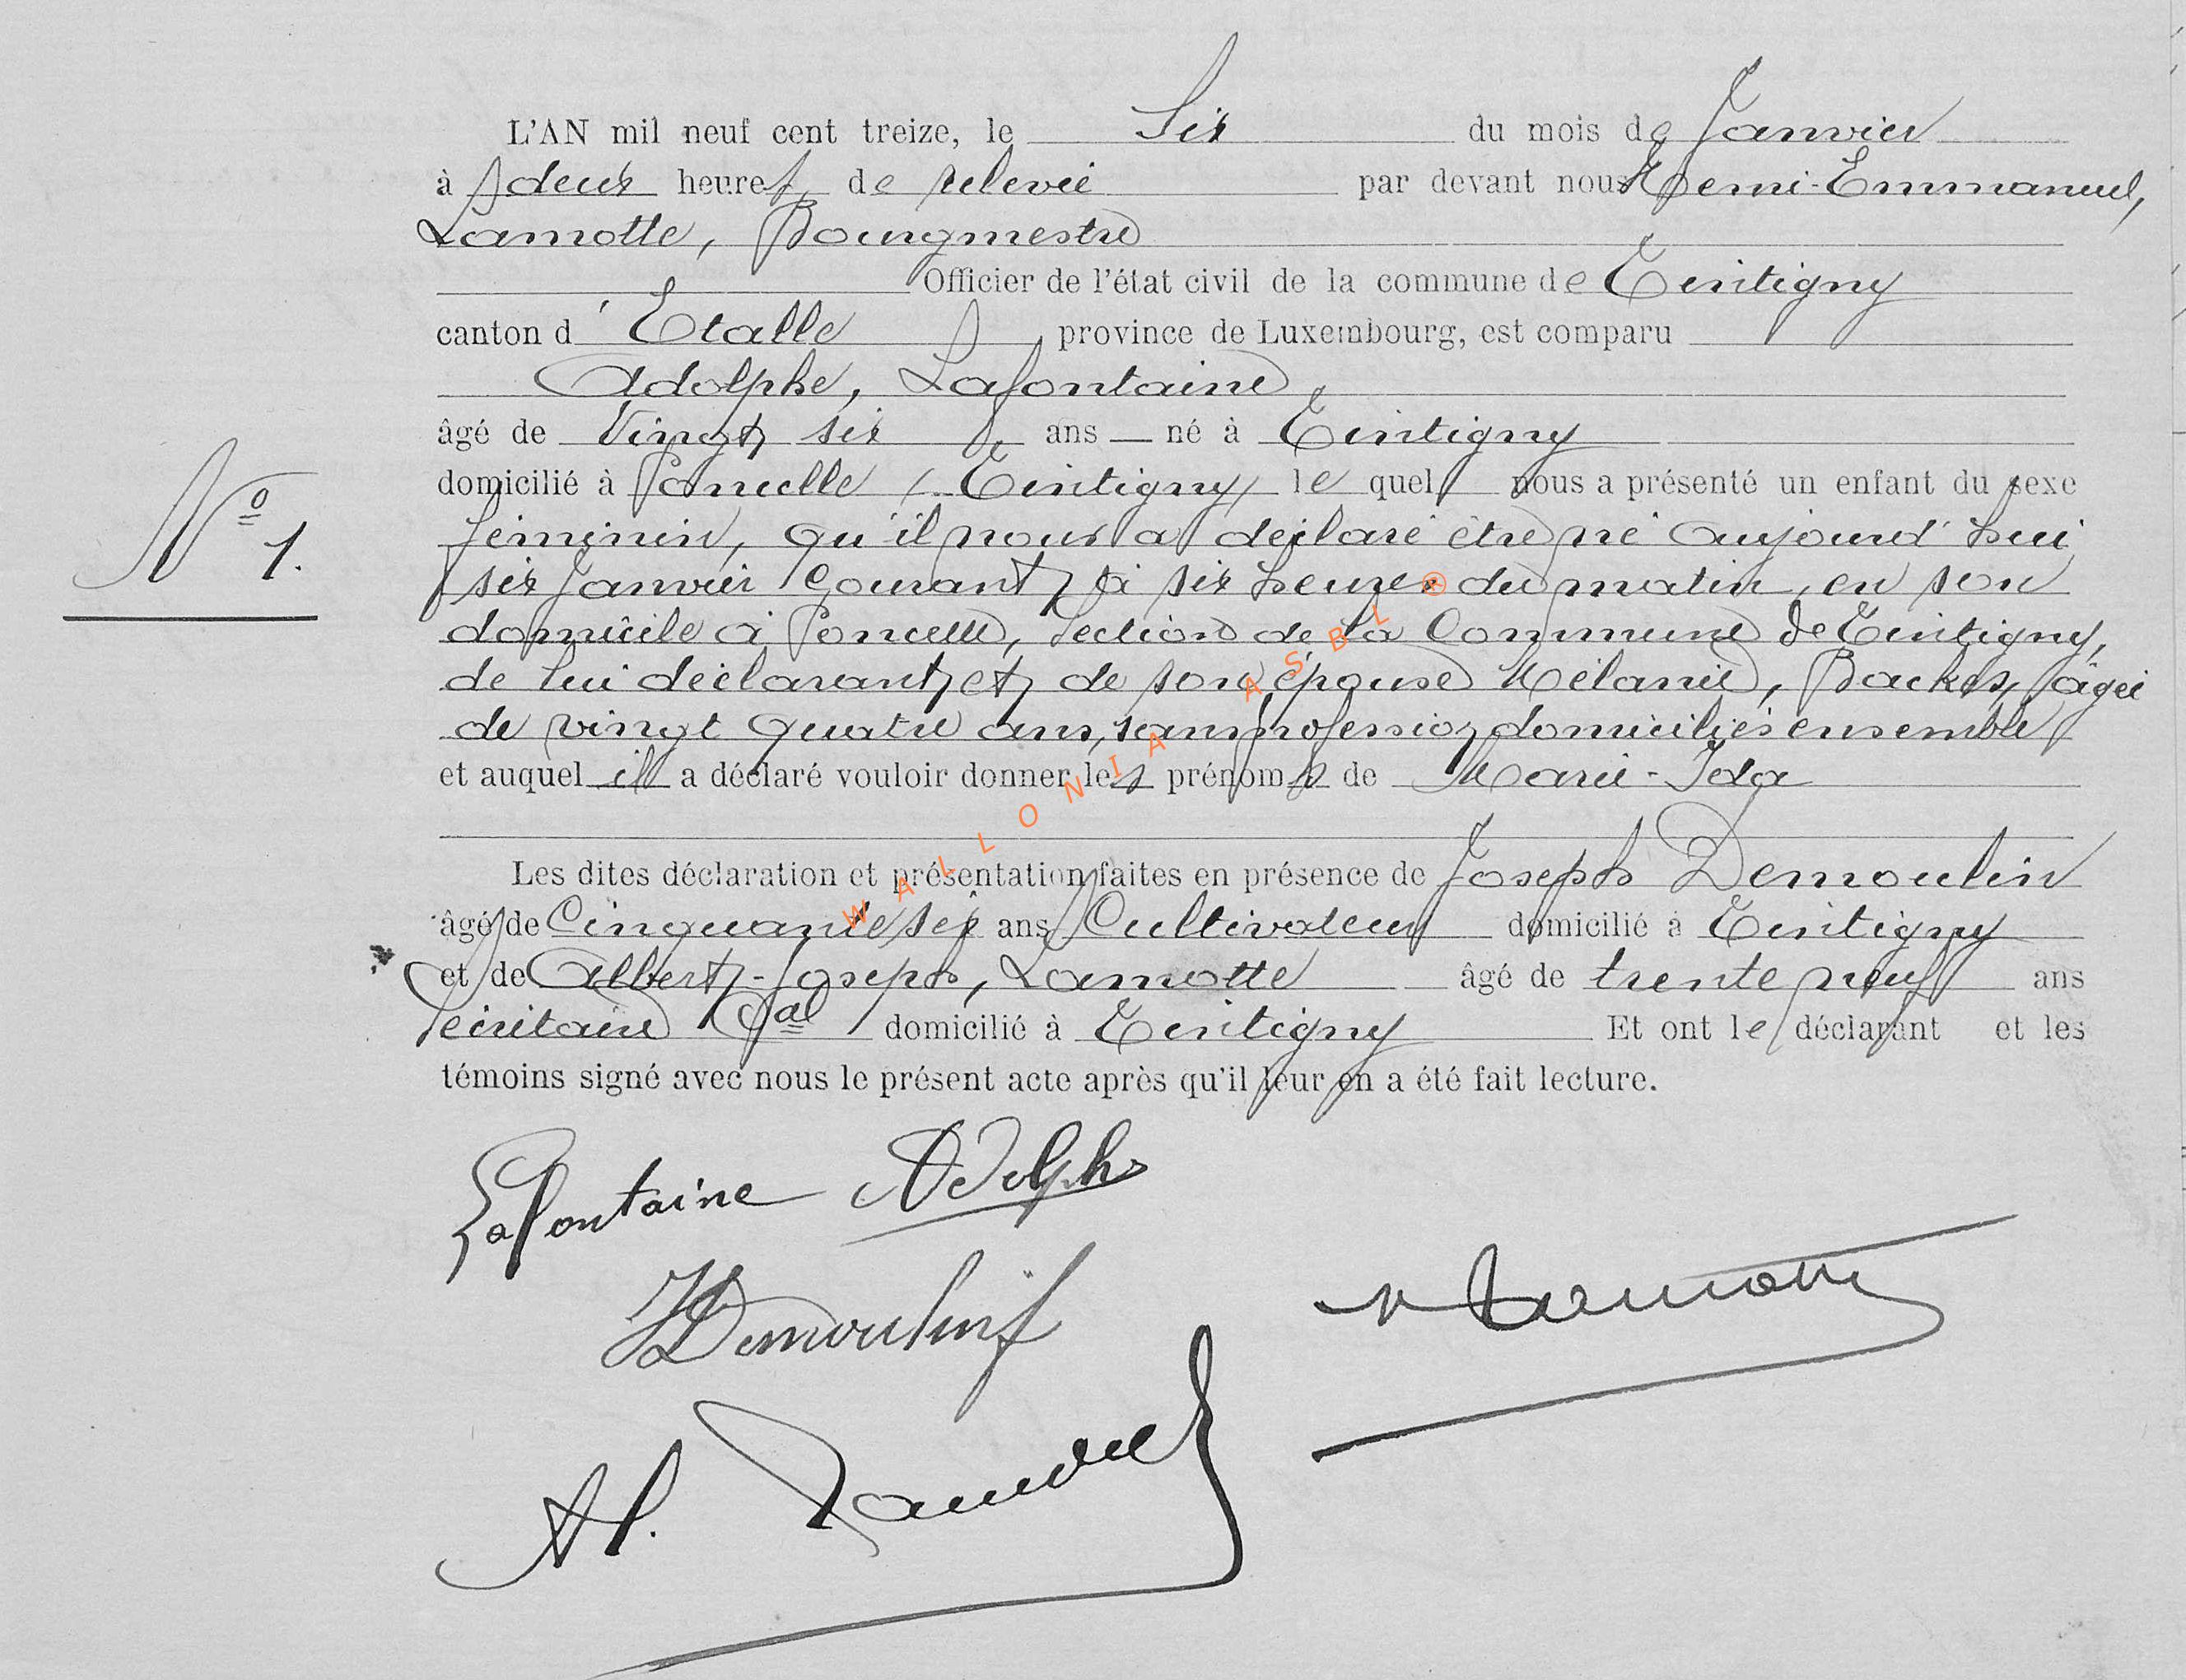 L'AN mil neuf cent treize, le Six du mois de Janvier
à deux heures de relevée par devant nous Henri-Emmanuel,
Lamotte, Bourgmestre
Officier de l'état civil de la commune de Tintigny
canton d'Etalle province de Luxembourg, est comparu
Adolphe, Lafontaine,
âgé de Vingt six ans né à Tintigny
domicilié à Poncelle (Tintigny) le quel nous a présenté un enfant du sexe
N° 1.
féminin, qu'il nous a déclaré être né aujourd'hui
six Janvier Courant, à six heures du matin, en son
domicile à Poncelle, Section de la Commune de Tintigny,
de lui déclarant et de son épouse Mélanie, Backes, âgée
de vingt quatre ans, sans profession, domiciliés ensemble
et auquel il a déclaré vouloir donner les prénoms de Marie-Ida
Les dites déclaration et présentation faites en présence de Joseph Demoulin
âgé de Cinquante six ans Cultivateur domicilié à Tintigny
et de Albert-Joseph, Lamotte âgé de trente neuf ans
Secrétaire Cal domicilié à Tintigny Et ont le déclarant et les
témoins signé avec nous le présent acte après qu'il leur en a été fait lecture.
Lafontaine Adolphe
JDemoulin
Lamotte
Al. Lamotte
WALLONIA ASBL ®